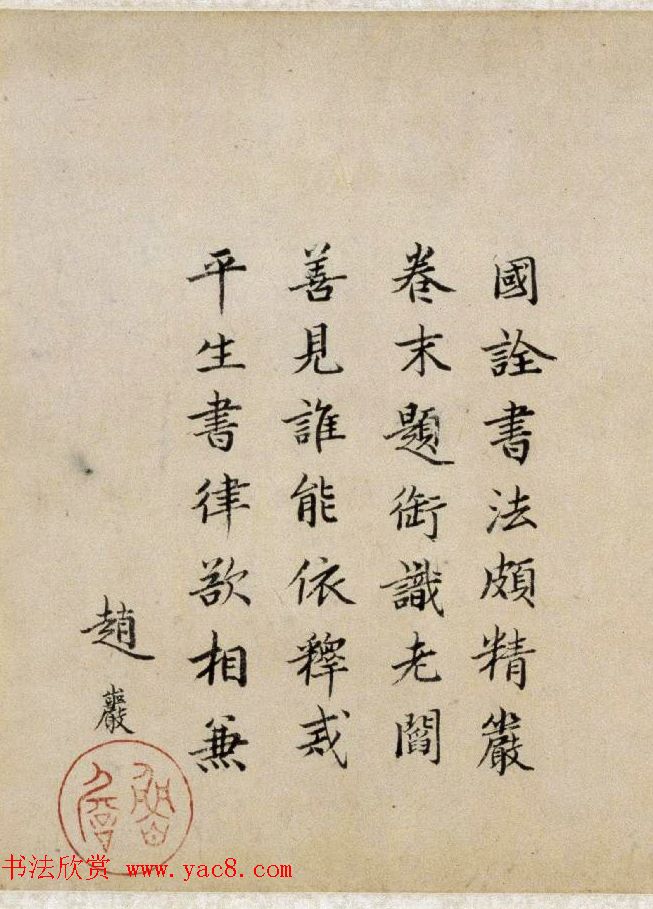 國詮書法頗精嚴
卷末題銜識老閻
善見誰能依釋戒
平生書律欲相兼
趙巖
书法欣赏 www.yac8.com